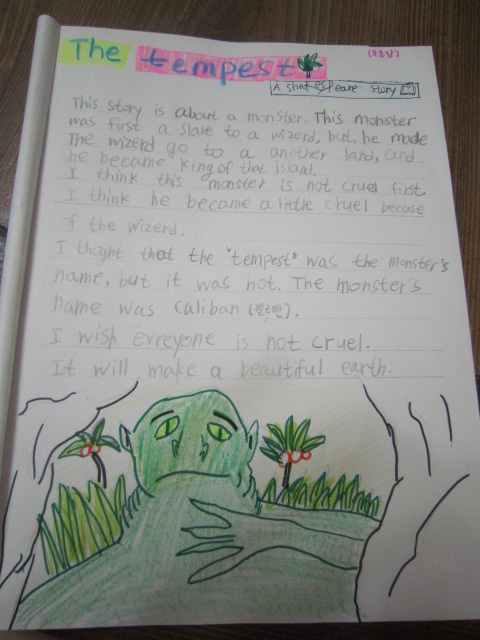 The tempest
A shakespeare story
This story is about a monster. This monster
was first a slave to a wizerd, but, he made
The wizerd go to a another land, and
he became king of that island.
I think this monster is not cruel first.
I think he became a little cruel becuse
of the wizerd.
I thoght that the 'tempest' was the monster's
name, but it was not. The monster's
name was Caliban (캘리반).
I wish evreyone is not cruel.
It will make a beautiful earth.